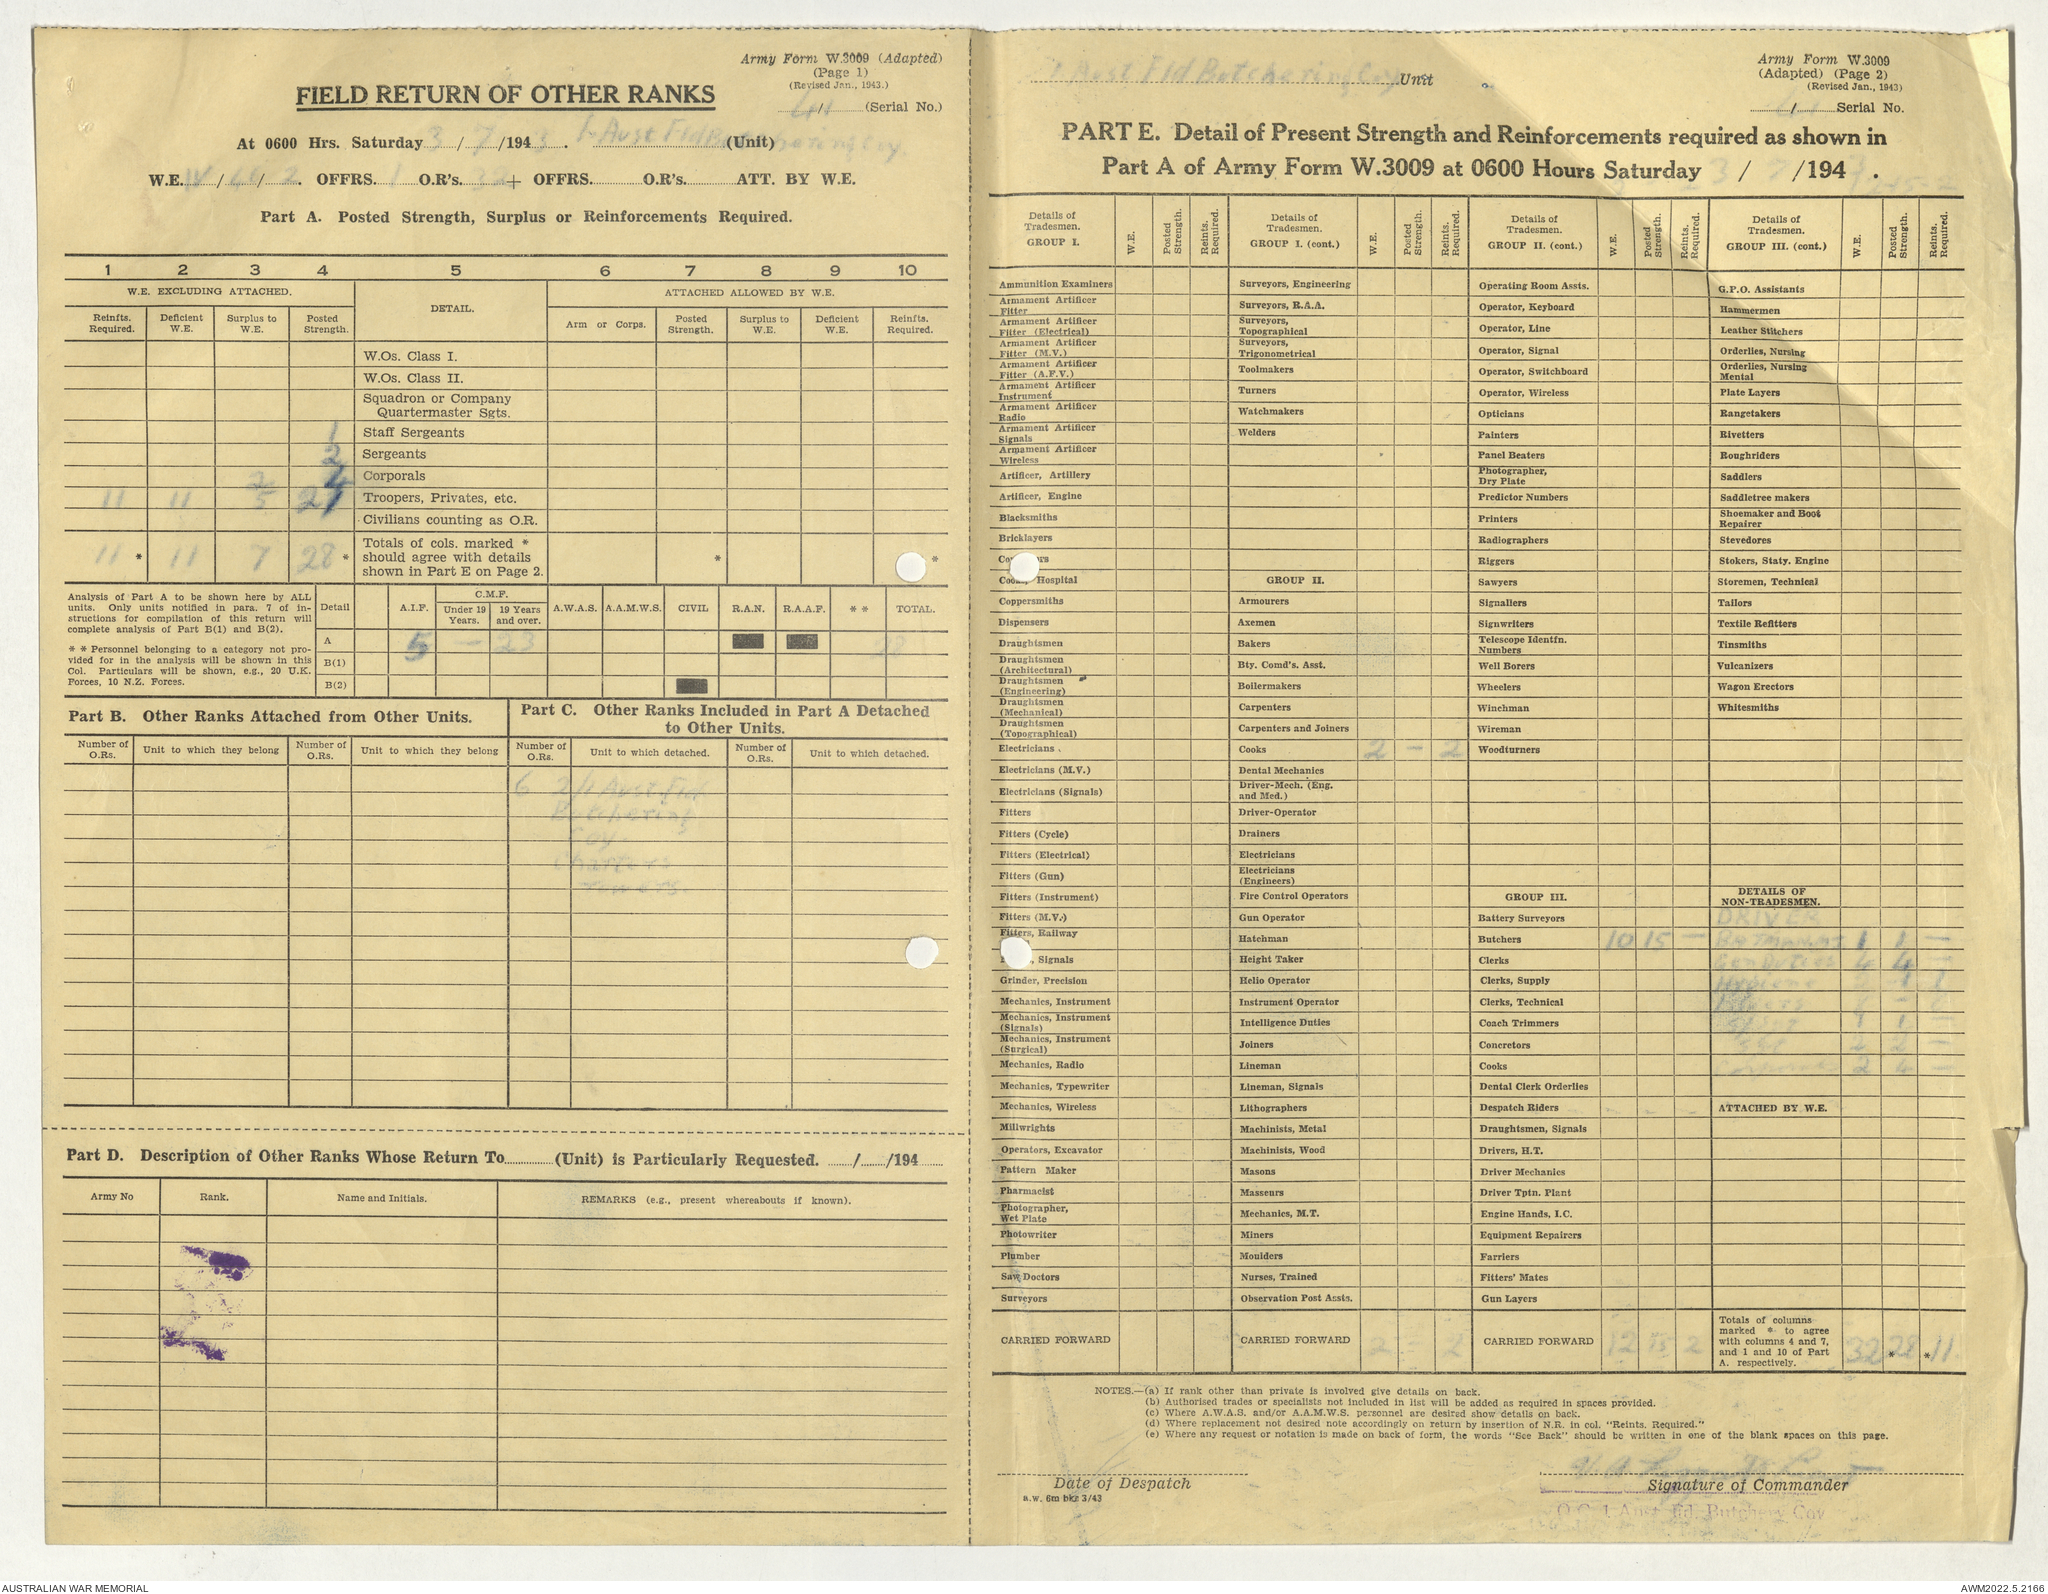 Army Form W.3009 (Adapted)
(Page 1)
(Revised Jan., 1943.)
FIELD RETURN OF OTHER RANKS
41 (Serial No.)
At 0600 Hrs. Saturday 3 / 7 /194 3. 1 Aust Fld Butchering Coy. (Unit)
W.E. / / 2. OFFRS. 1 O.R's. 32 + OFFRS. O.R's. ATT. BY W.E.
Part A. Posted Strength, Surplus or Reinforcements Required.
1 2 3 4 5 6 7 8 9 10
W.E. EXCLUDING ATTACHED. DETAIL. ATTACHED ALLOWED BY W.E.
Reinfts. Required. Deficient W.E. Surplus to W.E. Posted Strength. Arm or Corps. Posted Strength. Surplus to W.E. Deficient W.E. Reinfts. Required.
W.Os. Class I.
W.Os. Class II.
Squadron or Company Quartermaster Sgts.
1 Staff Sergeants
2 Sergeants
2 4 Corporals
11 11 5 21 Troopers, Privates, etc.
Civilians counting as O.R.
11 * 11 7 28 * Totals of cols. marked * should agree with details shown in Part E on Page 2. * *
Analysis of Part A to be shown here by ALL units. Only units notified in para. 7 of instructions for compilation of this return will complete analysis of Part B(1) and B(2).
* * Personnel belonging to a category not provided for in the analysis will be shown in this Col. Particulars will be shown, e.g., 20 U.K. Forces, 10 N.Z. Forces.
Detail A.I.F. C.M.F. Under 19 Years. 19 Years and over. A.W.A.S. A.A.M.W.S. CIVIL R.A.N. R.A.A.F. * * TOTAL.
A 5 — 23 28
B(1)
B(2)
Part B. Other Ranks Attached from Other Units.
Part C. Other Ranks Included in Part A Detached to Other Units.
Number of O.Rs. Unit to which they belong Number of O.Rs. Unit to which they belong Number of O.Rs. Unit to which detached. Number of O.Rs. Unit to which detached.
6 2/1 Aust Fld
Butchering
Coy.
Charters
Towers.
Part D. Description of Other Ranks Whose Return To (Unit) is Particularly Requested. / /194
Army No Rank. Name and Initials. REMARKS (e.g., present whereabouts if known).
1 Aust Fld Butchering Coy Unit
Army Form W.3009
(Adapted) (Page 2)
(Revised Jan., 1943)
/ Serial No.
PART E. Detail of Present Strength and Reinforcements required as shown in
Part A of Army Form W.3009 at 0600 Hours Saturday 3 / 7 /194 3.
Details of Tradesmen. GROUP I. W.E. Posted Strength. Reints. Required.
Ammunition Examiners
Armament Artificer Fitter
Armament Artificer Fitter (Electrical)
Armament Artificer Fitter (M.V.)
Armament Artificer Fitter (A.F.V.)
Armament Artificer Instrument
Armament Artificer Radio
Armament Artificer Signals
Armament Artificer Wireless
Artificer, Artillery
Artificer, Engine
Blacksmiths
Bricklayers
Hospital
Coppersmiths
Dispensers
Draughtsmen
Draughtsmen (Architectural)
Draughtsmen (Engineering)
Draughtsmen (Mechanical)
Draughtsmen (Topographical)
Electricians
Electricians (M.V.)
Electricians (Signals)
Fitters
Fitters (Cycle)
Fitters (Electrical)
Fitters (Gun)
Fitters (Instrument)
Fitters (M.V.)
Fitters, Railway
Signals
Grinder, Precision
Mechanics, Instrument
Mechanics, Instrument (Signals)
Mechanics, Instrument (Surgical)
Mechanics, Radio
Mechanics, Typewriter
Mechanics, Wireless
Millwrights
Operators, Excavator
Pattern Maker
Pharmacist
Photographer, Wet Plate
Photowriter
Plumber
Saw Doctors
Surveyors
CARRIED FORWARD
Details of Tradesmen. GROUP I. (cont.) W.E. Posted Strength. Reints. Required.
Surveyors, Engineering
Surveyors, R.A.A.
Surveyors, Topographical
Surveyors, Trigonometrical
Toolmakers
Turners
Watchmakers
Welders
GROUP II.
Armourers
Axemen
Bakers
Bty. Comd's. Asst.
Boilermakers
Carpenters
Carpenters and Joiners
Cooks 2 — 2
Dental Mechanics
Driver-Mech. (Eng. and Med.)
Driver-Operator
Drainers
Electricians
Electricians (Engineers)
Fire Control Operators
Gun Operator
Hatchman
Height Taker
Helio Operator
Instrument Operator
Intelligence Duties
Joiners
Lineman
Lineman, Signals
Lithographers
Machinists, Metal
Machinists, Wood
Masons
Masseurs
Mechanics, M.T.
Miners
Moulders
Nurses, Trained
Observation Post Assts.
CARRIED FORWARD 2 — 2
Details of Tradesmen. GROUP II. (cont.) W.E. Posted Strength. Reints. Required.
Operating Room Assts.
Operator, Keyboard
Operator, Line
Operator, Signal
Operator, Switchboard
Operator, Wireless
Opticians
Painters
Panel Beaters
Photographer, Dry Plate
Predictor Numbers
Printers
Radiographers
Riggers
Sawyers
Signallers
Signwriters
Telescope Identfn. Numbers
Well Borers
Wheelers
Winchman
Wireman
Woodturners
GROUP III.
Battery Surveyors
Butchers 10 15 —
Clerks
Clerks, Supply
Clerks, Technical
Coach Trimmers
Concretors
Cooks
Dental Clerk Orderlies
Despatch Riders
Draughtsmen, Signals
Drivers, H.T.
Driver Mechanics
Driver Tptn. Plant
Engine Hands, I.C.
Equipment Repairers
Farriers
Fitters' Mates
Gun Layers
CARRIED FORWARD 12 15 2
Details of Tradesmen. GROUP III. (cont.) W.E. Posted Strength. Reints. Required.
G.P.O. Assistants
Hammermen
Leather Stitchers
Orderlies, Nursing
Orderlies, Nursing Mental
Plate Layers
Rangetakers
Rivetters
Roughriders
Saddlers
Saddletree makers
Shoemaker and Boot Repairer
Stevedores
Stokers, Staty. Engine
Storemen, Technical
Tailors
Textile Refitters
Tinsmiths
Vulcanizers
Wagon Erectors
Whitesmiths
DETAILS OF NON-TRADESMEN.
DRIVER
Batman 1 1 —
Gen Duties 4 4 —
Hygiene
1 1 —
2 2 —
2 4 —
ATTACHED BY W.E.
Totals of columns marked * to agree with columns 4 and 7, and 1 and 10 of Part A. respectively. 32 *28 *11
NOTES.—(a) If rank other than private is involved give details on back.
(b) Authorised trades or specialists not included in list will be added as required in spaces provided.
(c) Where A.W.A.S. and/or A.A.M.W.S. personnel are desired show details on back.
(d) Where replacement not desired note accordingly on return by insertion of N.R. in col. "Reints. Required."
(e) Where any request or notation is made on back of form, the words "See Back" should be written in one of the blank spaces on this page.
Date of Despatch
Signature of Commander
a.w. 6m bks 3/43
O.C. 1 Aust. Fd. Butchery Coy
AUSTRALIAN WAR MEMORIAL
AWM2022.5.2166